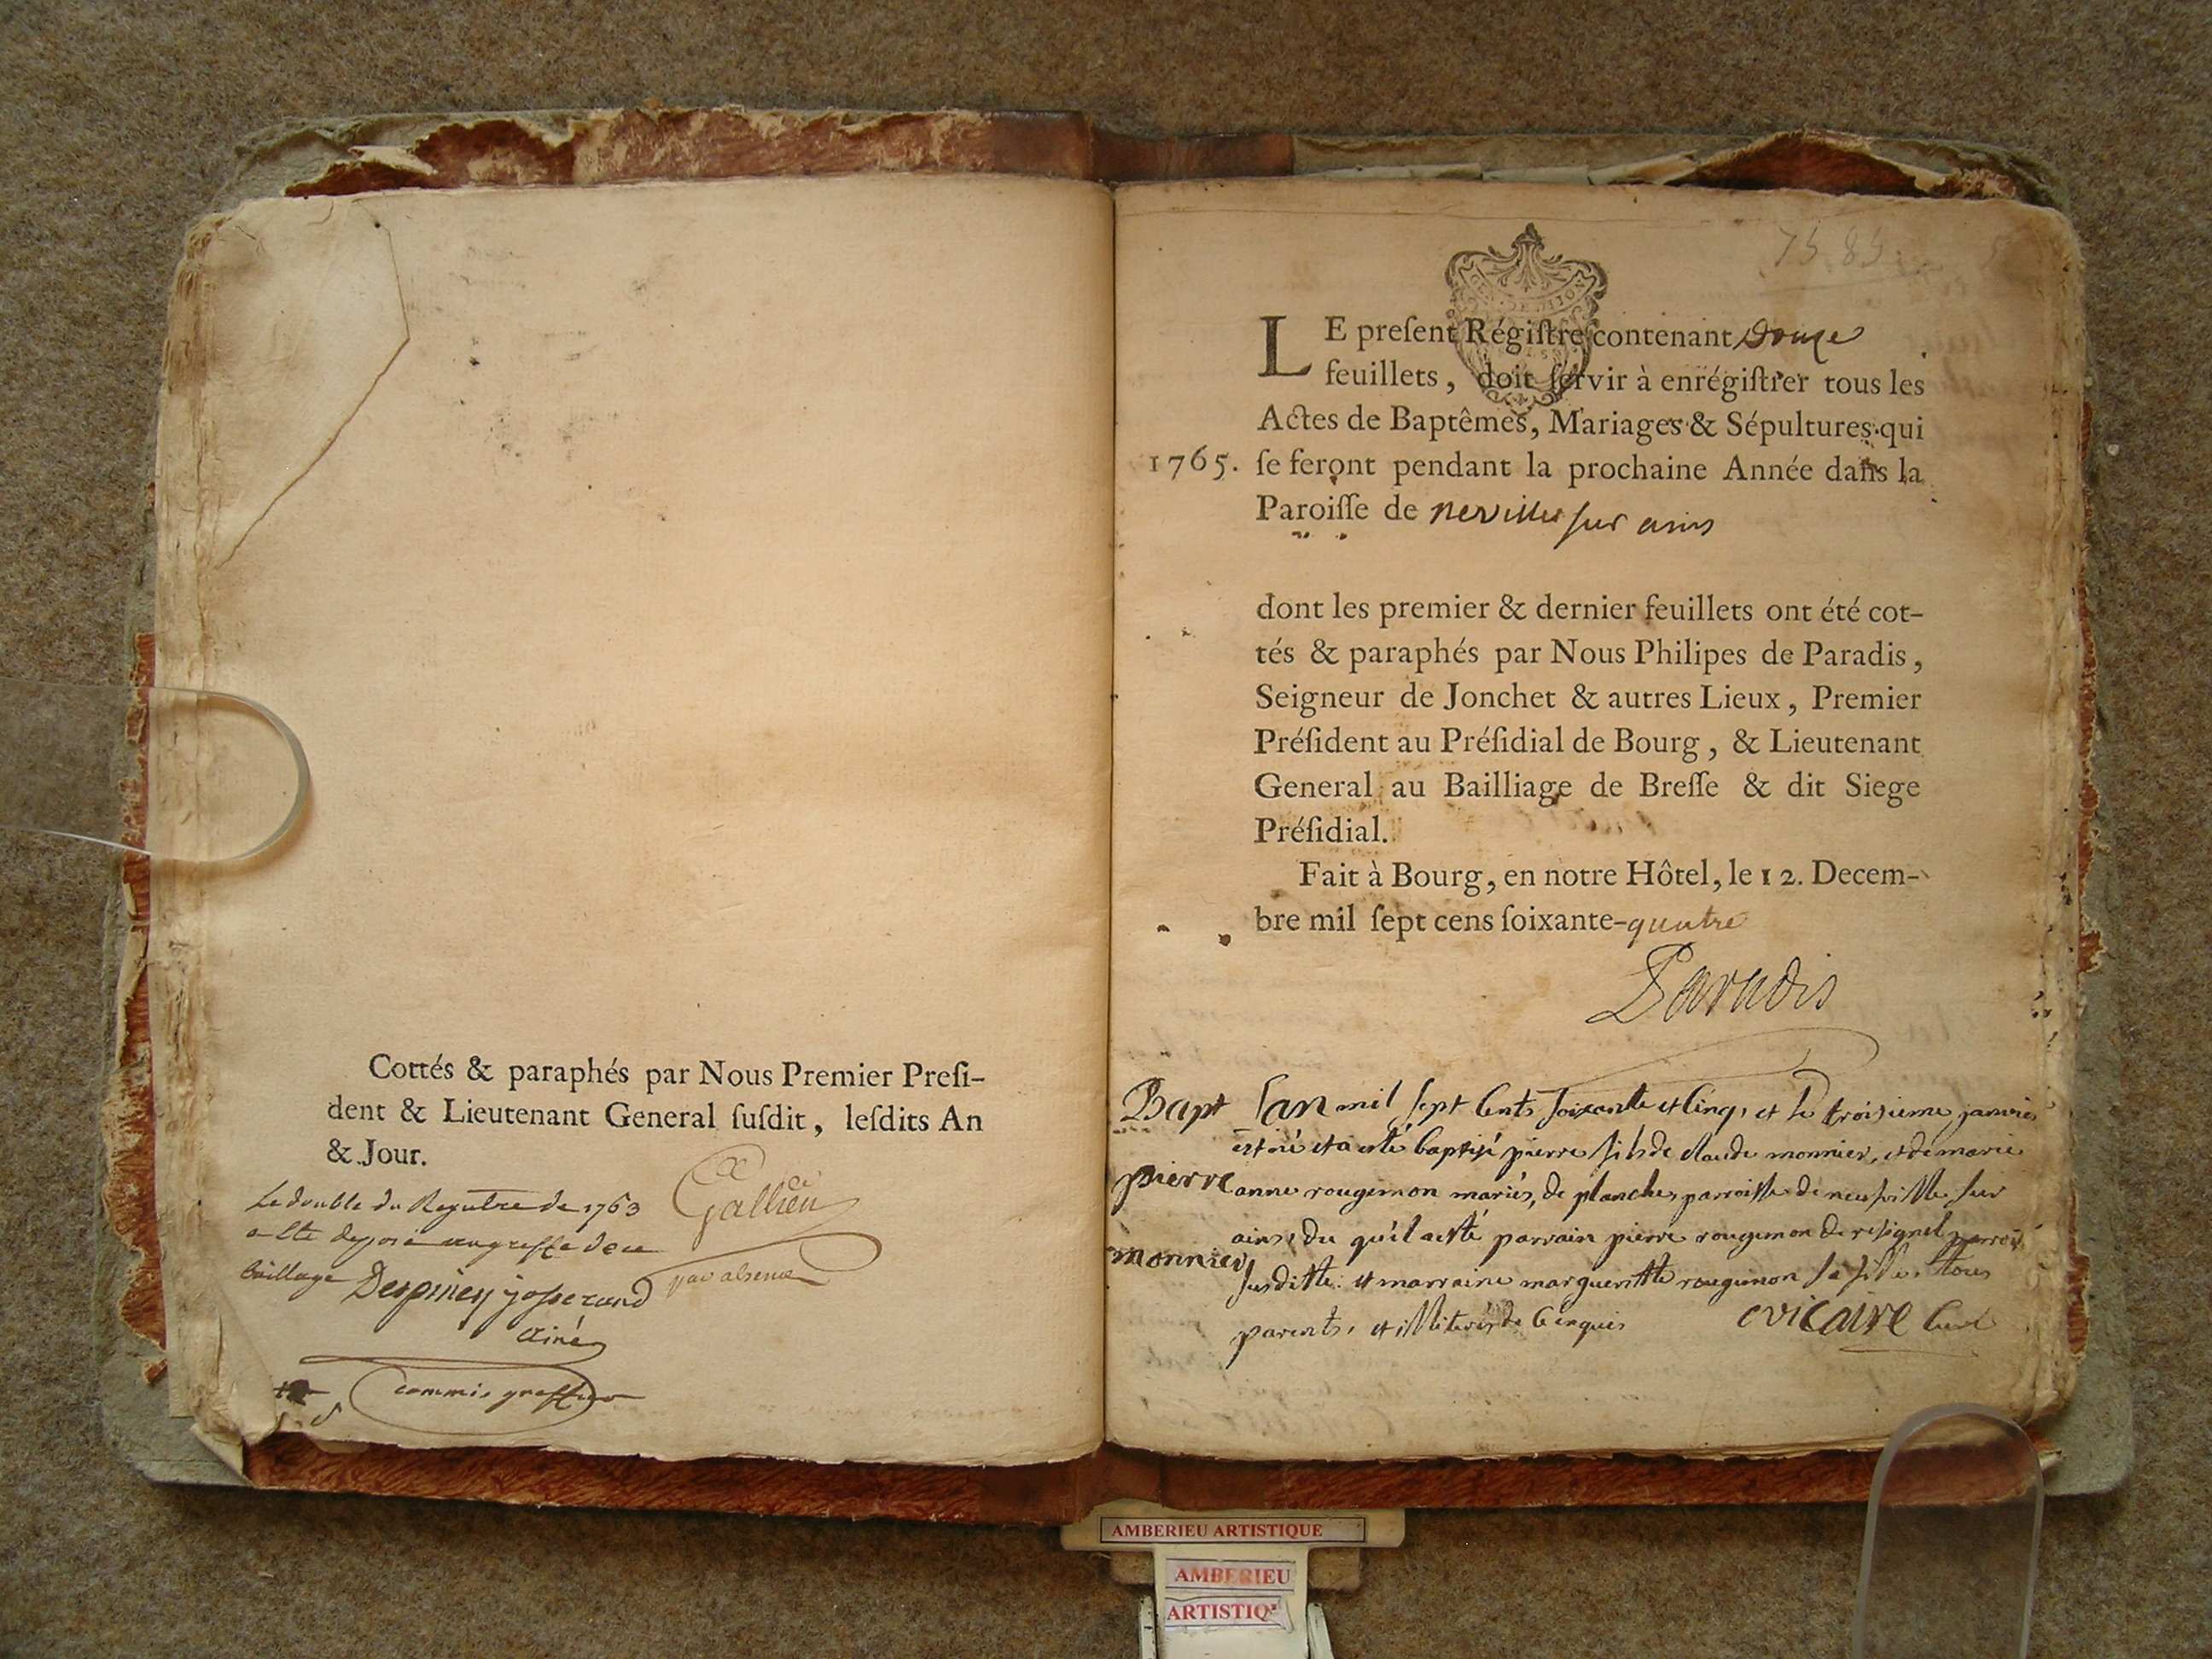 Cottés & paraphés par Nous Premier Presi-
dent & Lieutenant General susdit, lesdits An
& Jour.
Gallien
par absence
Le double du Registre de 1763
a ete deposé au greffe de ce
bailliage Despiney josserand
Ainé
commis greffier
75 85
LE present Régistre contenant Douze
feuillets, doit servir à enrégistrer tous les
Actes de Baptêmes, Mariages & Sépultures qui
1765. se feront pendant la prochaine Année dans la
Paroisse de neuville sur ains
dont les premier & dernier feuillets ont été cot-
tés & paraphés par Nous Philipes de Paradis,
Seigneur de Jonchet & autres Lieux, Premier
Président au Présidial de Bourg, & Lieutenant
General au Bailliage de Bresse & dit Siege
Présidial.
Fait à Bourg, en notre Hôtel, le 12. Decem-
bre mil sept cens soixante-quatre
Paradis
Bapt Lan mil sept Cents Soixante et Cinq, et le troisieme janvier
est né et a esté baptisé pierre fils de claude monnier, et de marie
pierre anne rougemon mariés, de planche, parroisse de neufville sur
ains, du qu'il a esté parrain pierre rougemon de resignel parrois
monnier susditte: et marraine margueritte rougemon sa fille. tous
parents, et illiterés de Ce enquis cvicaire Curé
AMBERIEU ARTISTIQUE
AMBERIEU
ARTISTIQ